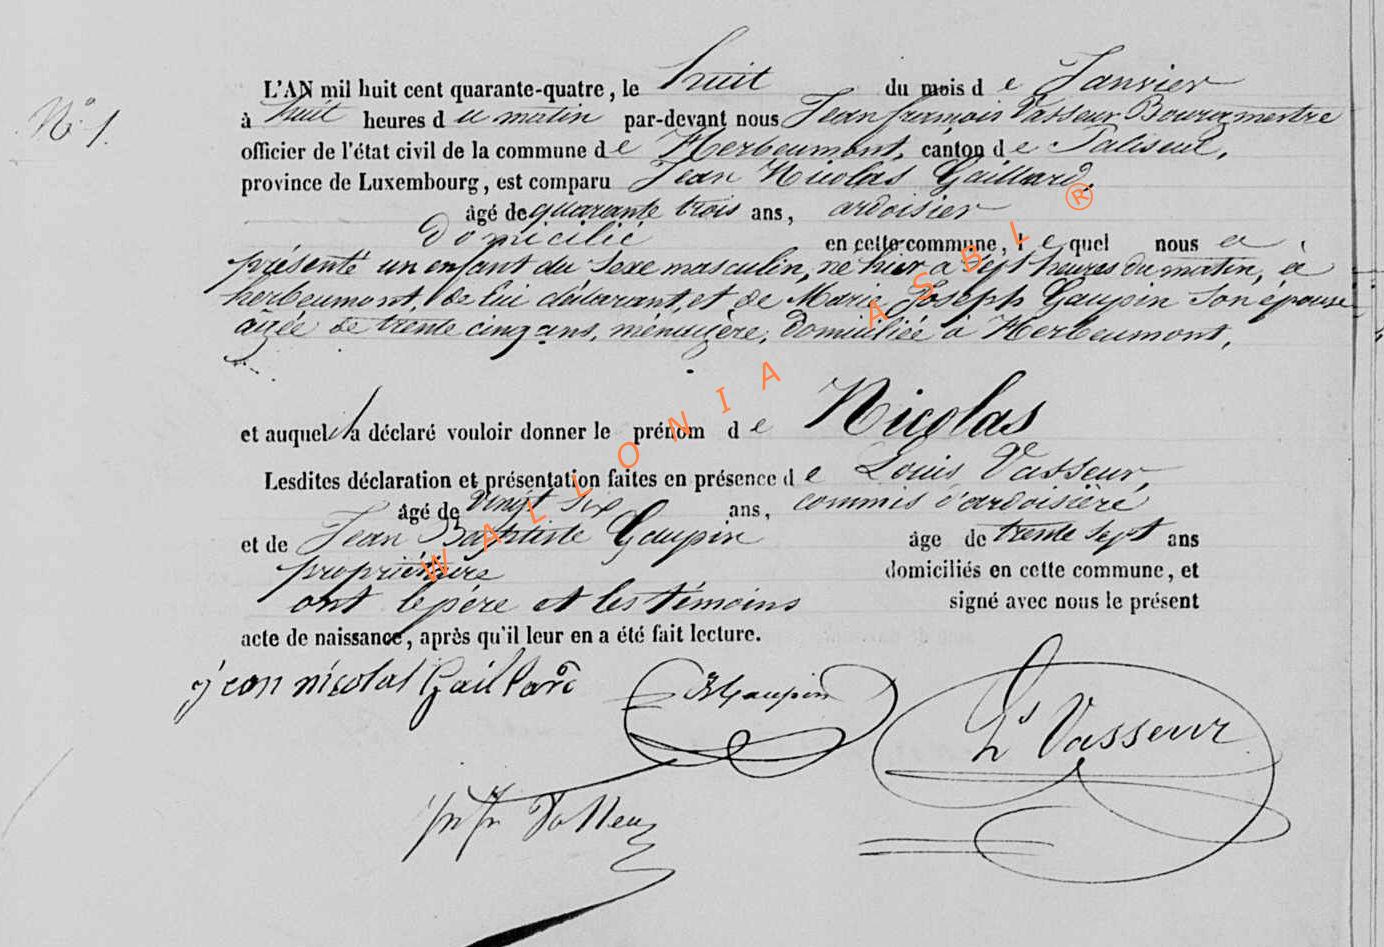 N° 1.
L'AN mil huit cent quarante-quatre, le huit du mois de Janvier
à huit heures du matin par-devant nous Jean françois Vasseur Bourgmestre
officier de l'état civil de la commune de Herbeumont, canton de Paliseul,
province de Luxembourg, est comparu Jean Nicolas Gaillard,
âgé de quarante trois ans, ardoisier
domicilié en cette commune, lequel nous a
présenté un enfant du sexe masculin, né hier a sept heures du matin, a
herbeumont, de lui déclarant, et de Marie Joseph Gaupin son épouse
agée de trente cinq ans, ménagère, domiciliée à Herbeumont,
et auquel il a déclaré vouloir donner le prénom de Nicolas
Lesdites déclaration et présentation faites en présence de Louis Vasseur,
âgé de vingt six ans, commis d'ardoisière
et de Jean Baptiste Gaupin âge de trente sept ans
propriétaire domiciliés en cette commune, et
ont le père et les témoins signé avec nous le présent
acte de naissance, après qu'il leur en a été fait lecture.
jean nicolas Gaillard JBGaupin Ls Vasseur
Vasseur
WALLONIA ASBL ®